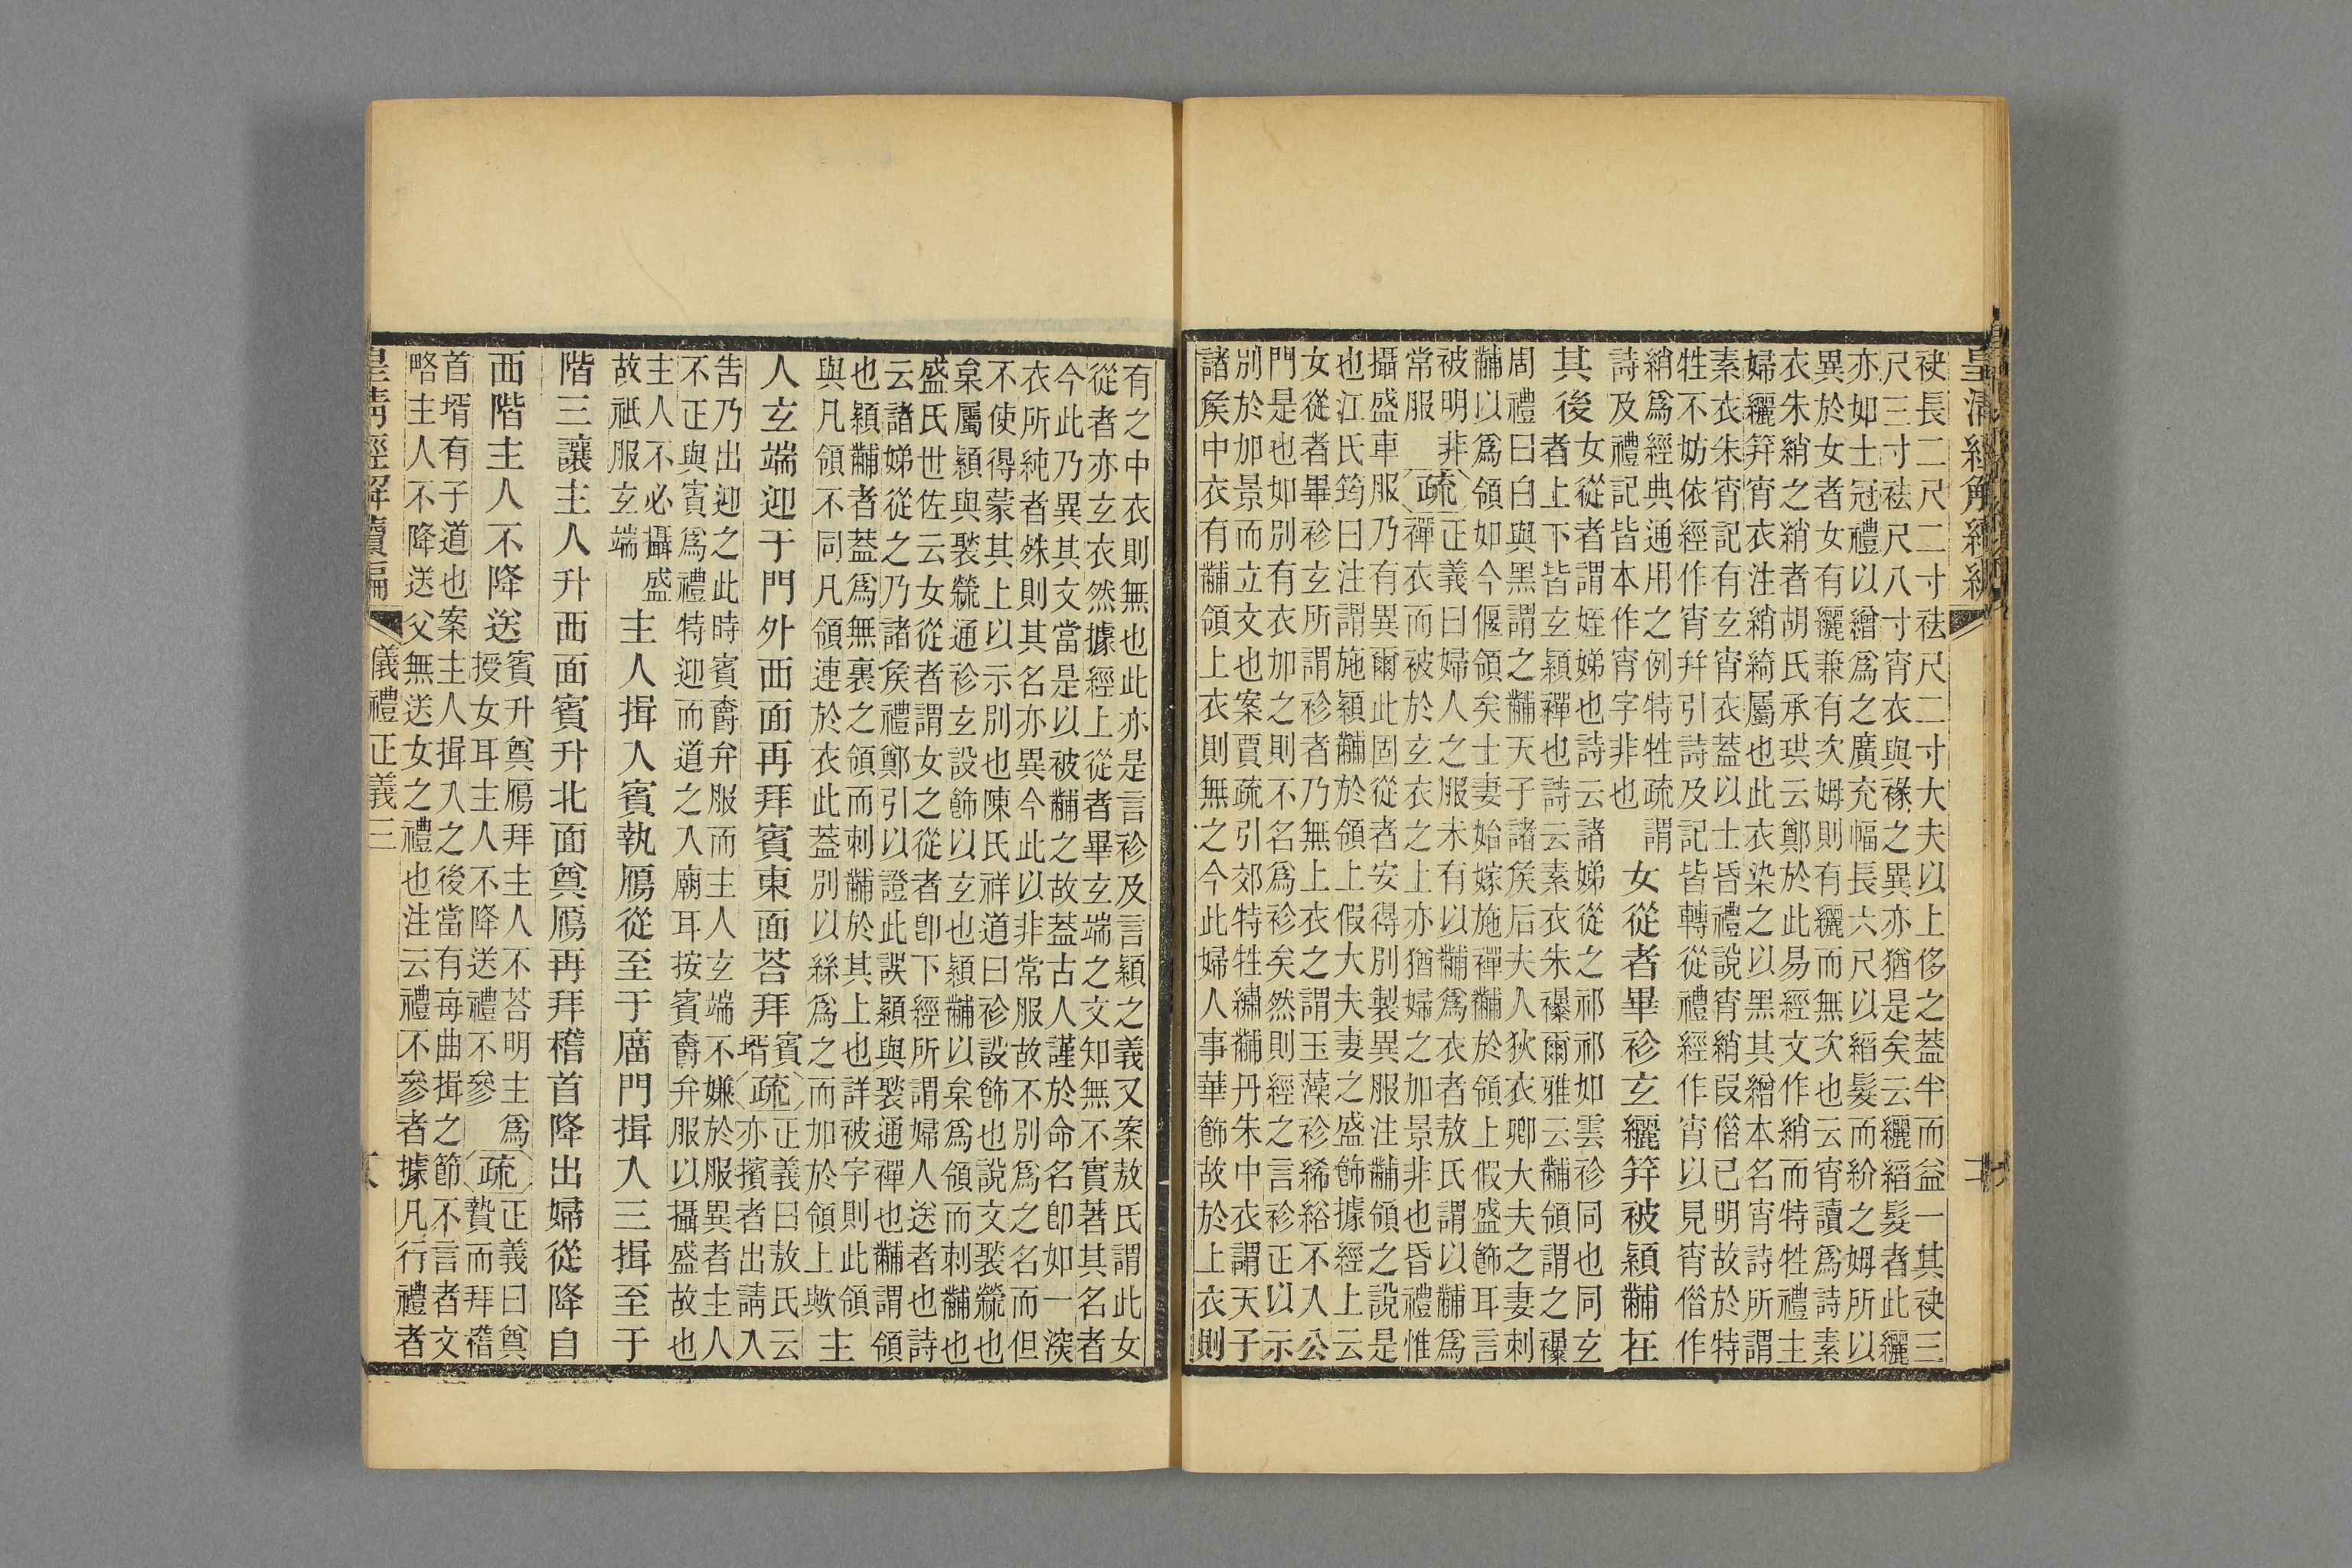 皇清經解續編
袂長二尺二寸袪尺二寸大夫以上侈之蓋半而益一其袂三
尺三寸袪尺八寸宵衣與褖之異亦猶是矣云纚縚髮者此纚
亦如士冠禮以繒爲之廣充幅長六尺以縚髮而紒之姆所以
異於女者女有纚兼有次姆則有纚而無次也云宵讀爲詩素
衣朱綃之綃者胡氏承珙云鄭於此易經文作綃而特牲禮主
婦纚笄宵衣注綃綺屬也此衣染之以黑其繒本名宵詩所謂
素衣朱宵記有玄宵衣蓋以士昏禮說宵綃叚借已明故於特
牲不妨依經作宵幷引詩及記皆轉從禮經作宵以見宵借作
綃爲經典通用之例特牲疏謂
詩及禮記皆本作宵字非也
女從者畢袗玄纚笄被穎黼在
其後
女從者謂姪娣也詩云諸娣從之祁祁如雲袗同也同玄
者上下皆玄穎襌也詩云素衣朱襮爾雅云黼領謂之襮
周禮曰白與黑謂之黼天子諸矦后夫人狄衣卿大夫之妻刺
黼以爲領如今偃領矣士妻始嫁施襌黼於領上假盛飾耳言
被明非
常服
疏
正義曰婦人之服未有以黼爲衣者敖氏謂以黼爲
襌衣而被於玄衣之上亦猶婦之加景非也昏禮惟
攝盛車服乃有異爾此固從者安得別製異服注黼領之說是
也江氏筠曰注謂施穎黼於領上假大夫妻之盛飾據經上云
女從者畢袗玄所謂袗者乃無上衣之謂玉藻袗絺綌不入公
門是也如別有衣加之則不名爲袗矣然則經之言袗正以示
別於加景而立文也案賈疏引郊特牲繡黼丹朱中衣謂天子
諸矦中衣有黼領上衣則無之今此婦人事華飾故於上衣則
有之中衣則無也此亦是言袗及言穎之義又案敖氏謂此女
從者亦玄衣然據經上從者畢玄端之文知無不實著其名者
今此乃異其文當是以被黼之故蓋古人謹於命名卽如一滾
衣所純者殊則其名亦異今此以非常服故不別爲之名而但
不使得蒙其上以示別也陳氏祥道曰袗設飾也說文褧檾也
枲屬穎與褧檾通袗玄設飾以玄也穎黼以枲爲領而刺黼也
盛氏世佐云女從者謂女之從者卽下經所謂婦人送者也詩
云諸娣從之乃諸矦禮鄭引以證此誤穎與褧通襌也黼謂領
也穎黼者蓋爲無裏之領而刺黼於其上也詳被字則此領
與凡領不同凡領連於衣此蓋別以絲爲之而加於領上歟
主
人玄端迎于門外西面再拜賓東面荅拜
賓
壻
疏
正義曰敖氏云
亦擯者出請入
告乃出迎之此時賓爵弁服而主人玄端不嫌於服異者主人
不正與賓爲禮特迎而道之入廟耳按賓爵弁服以攝盛故也
主人不必攝盛
故祇服玄端
主人揖入賓執鴈從至于廟門揖入三揖至于
階三讓主人升西面賓升北面奠鴈再拜稽首降出婦從降自
西階主人不降送
賓升奠鴈拜主人不荅明主爲
授女耳主人不降送禮不參
疏
正義曰奠
贄而拜稽
首壻有子道也案主人揖入之後當有每曲揖之節不言者文
略主人不降送父無送女之禮也注云禮不參者據凡行禮者
皇清經解續編
儀禮正義三